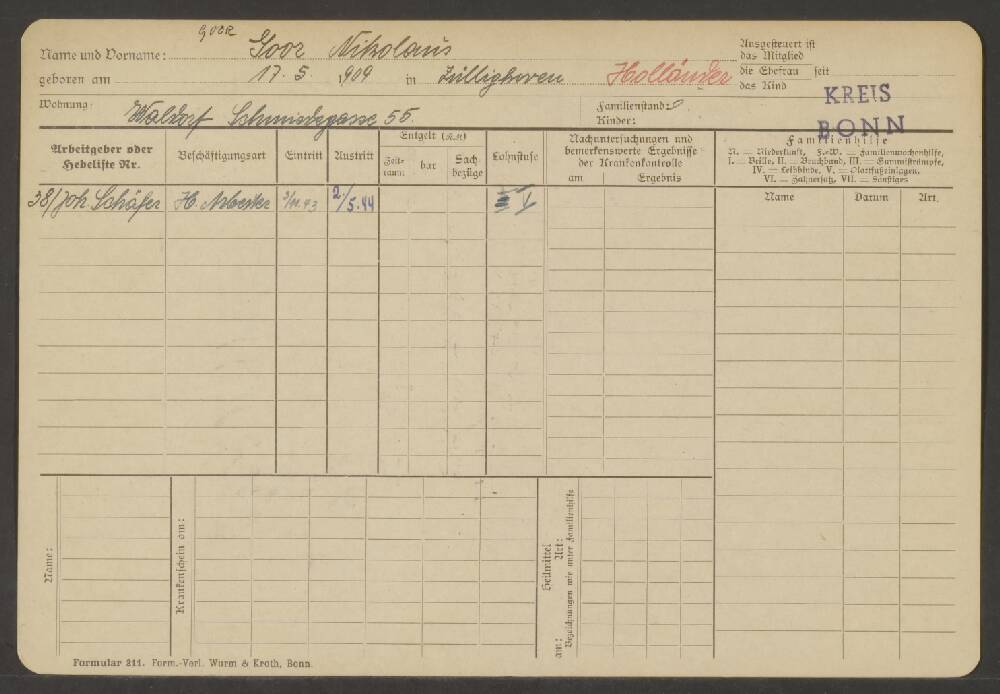 GOOR
Name und Vorname: Goor Nikolaus
geboren am 17. 5. 1909 in Züllighoven Holländer
Ausgesteuert ist
das Mitglied
die Ehefrau seit
das Kind
KREIS
BONN
Wohnung: Waldorf Schmidtgasse 55.
Familienstand:
Kinder:
Arbeitgeber oder
Hebeliste Nr.
Beschäftigungsart
Eintritt
Austritt
Entgelt (RM)
Zeit-
raum
bar
Sach-
bezüge
Lohnstufe
Nachuntersuchungen und
bemerkenswerte Ergebnisse
der Krankenkontrolle
am
Ergebnis
Familienhilfe
N. — Niederkunft, F.-W. — Familienwochenhilfe,
I. — Brille, II. — Bruchband, III. — Gummistrümpfe,
IV. — Leibbinde, V. — Plattfußeinlagen,
VI. — Zahnersatz, VII. — Sonstiges
Name
Datum
Art.
38/Joh. Schäfer H. Arbeiter 2/5.44 V
Name:
Krankenschein am:
Heilmittel
am: Art:
Bezeichnungen wie unter Familienhilfe
Formular 211. Form.-Verl. Wurm & Kroth, Bonn.